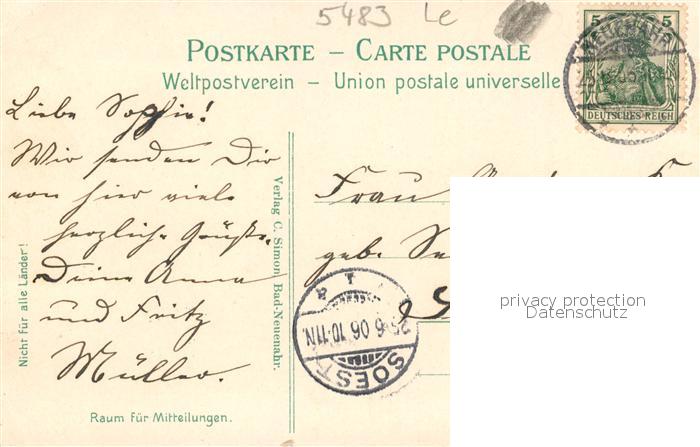 5483 Le
POSTKARTE – CARTE POSTALE
Weltpostverein – Union postale universelle
5 5
DEUTSCHES REICH
Liebe Sophie!
Wir senden Dir
von hier viele
herzliche Grüße.
Deine Anna
und Fritz
Müller.
Raum für Mitteilungen.
Nicht für alle Länder!
Verlag C. Simon, Bad-Neuenahr.
Frau
geb.
SOEST
25.6.06.10-11N.
privacy protection
Datenschutz